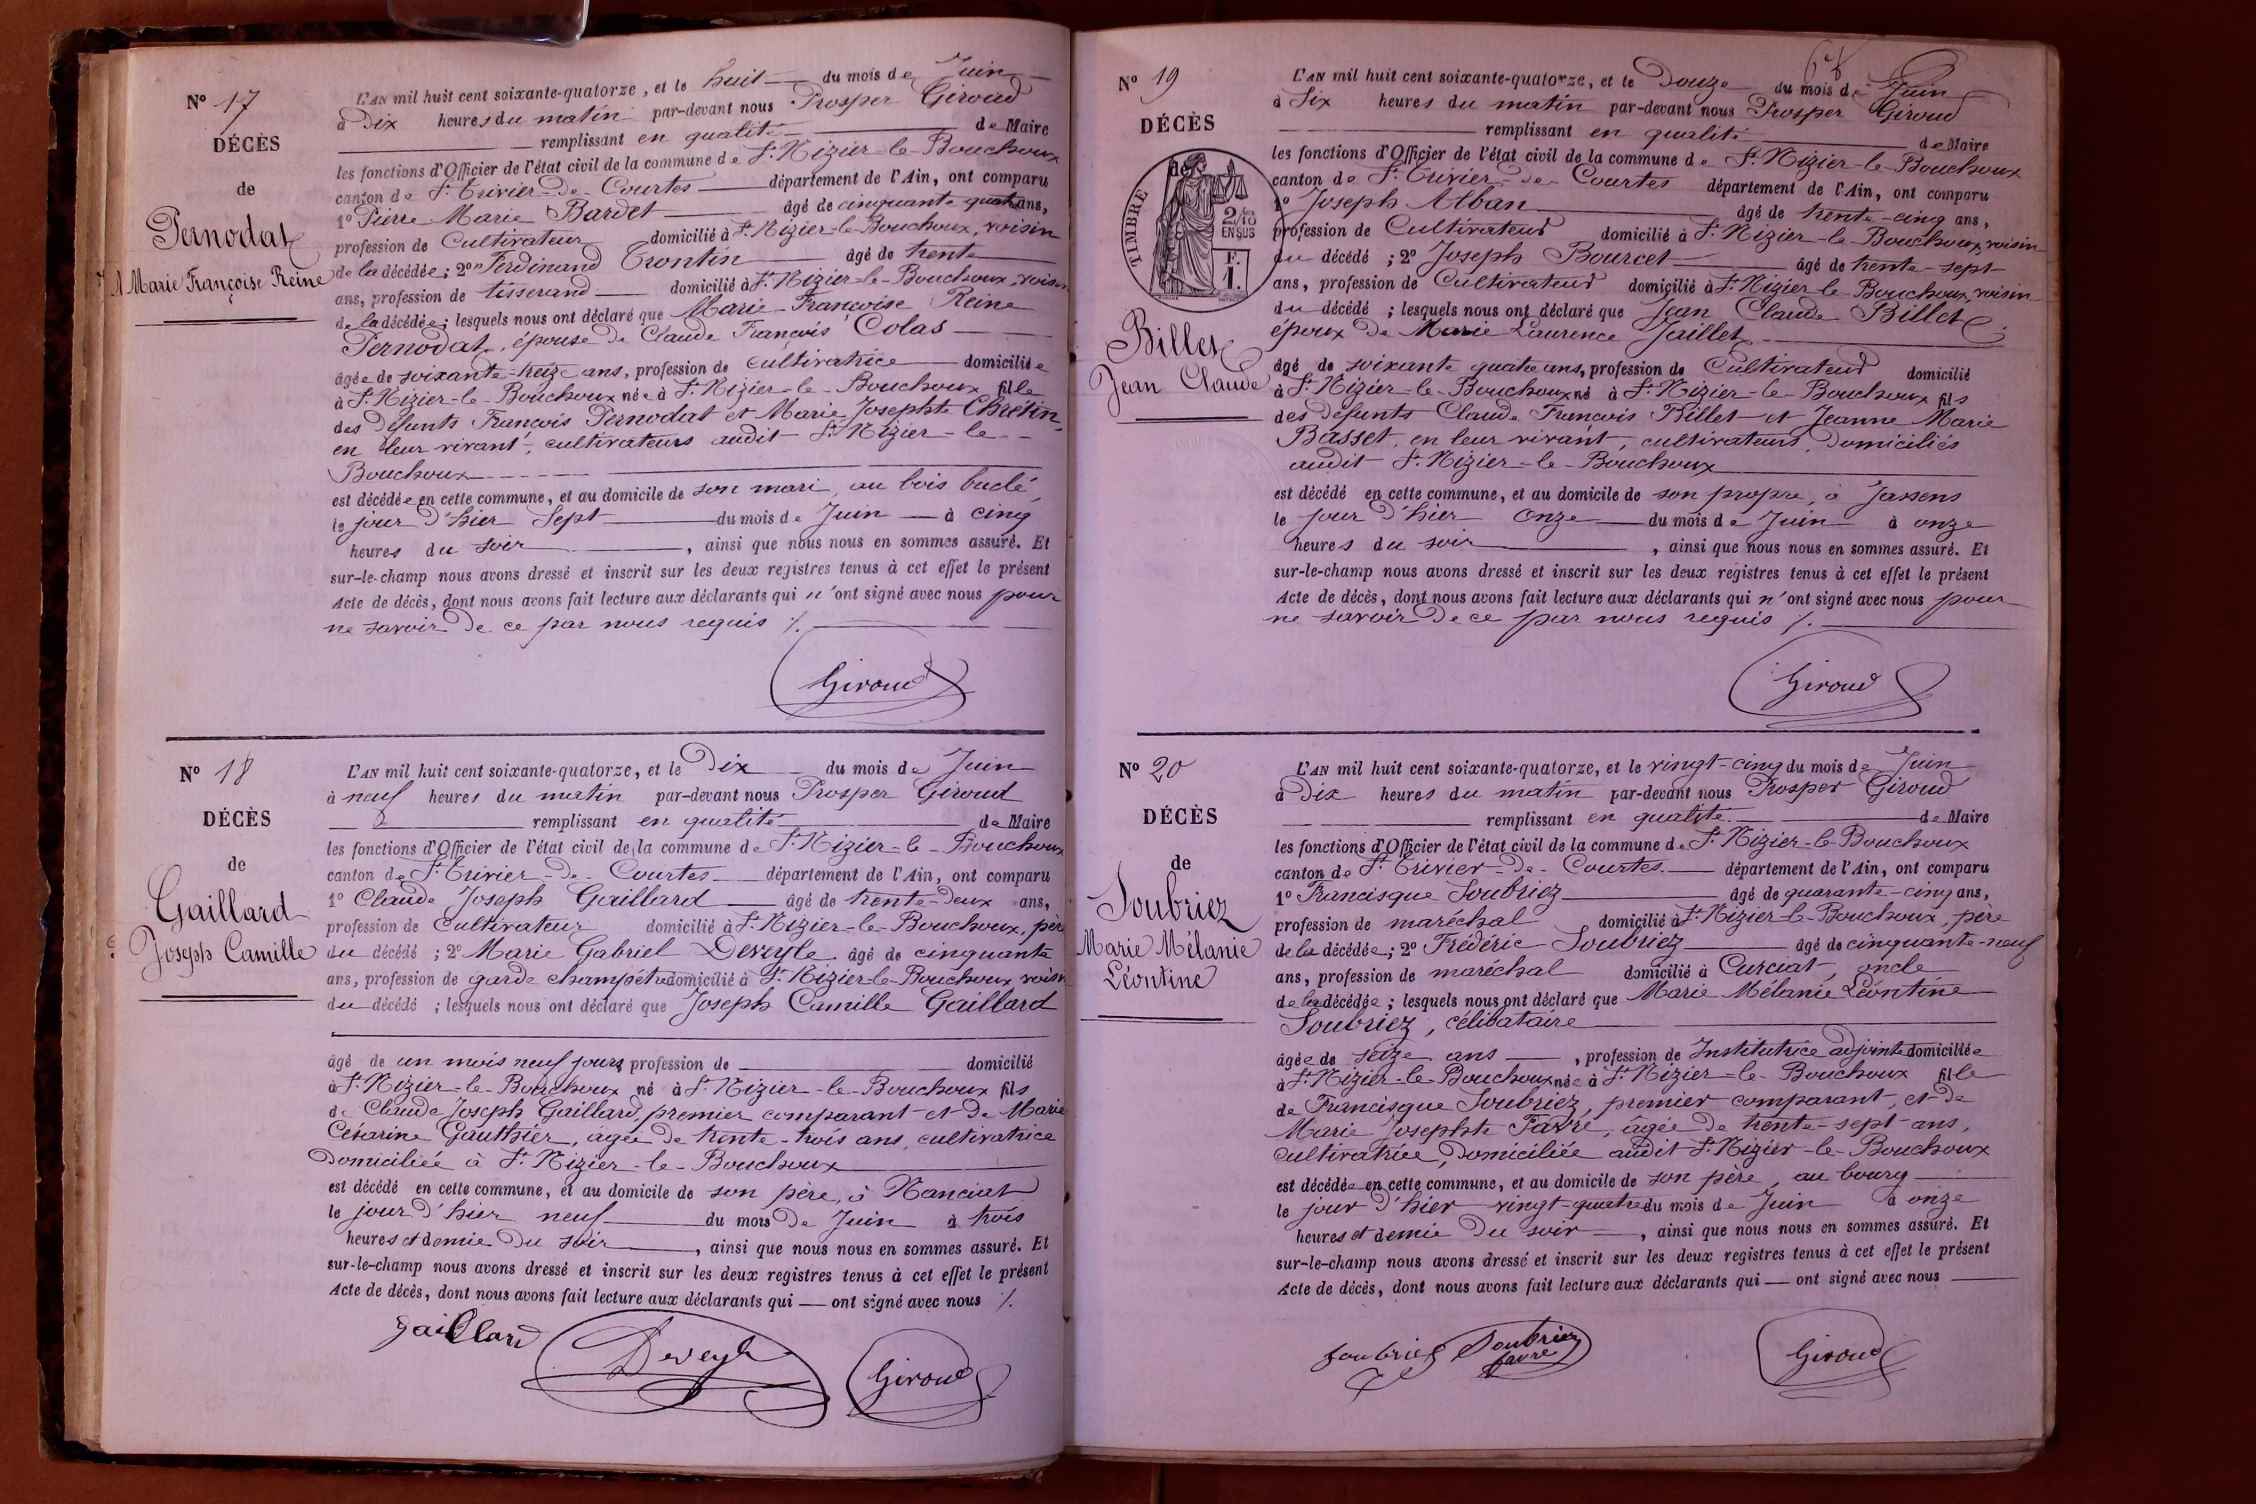 N° 17
DÉCÈS
de
Pernodat
Marie Françoise Reine
L'AN mil huit cent soixante-quatorze, et le huit du mois de Juin
à Dix heures du matin par-devant nous Prosper Giroud
remplissant en qualité de Maire
les fonctions d'Officier de l'état civil de la commune de St Nizier-le-Bouchoux
canton de St Trivier-De-Courtes département de l'Ain, ont comparu
1° Pierre Marie Bardet âgé de cinquante quatre ans,
profession de Cultivateur domicilié à St Nizier-le-Bouchoux, voisin
de la décédée; 2° Ferdinand Trontin âgé de trente
ans, profession de tisserand domicilié à St Nizier-le-Bouchoux, voisin
de la décédée; lesquels nous ont déclaré que Marie Françoise Reine
Pernodat, épouse de Claude François Colas
âgée de soixante-treize ans, profession de cultivatrice domiciliée
à St Nizier-le-Bouchoux née à St Nizier-le-Bouchoux fille
des Défunts François Pernodat et Marie Josephte Chrétin,
en leur vivant, cultivateurs audit St Nizier-le-
Bouchoux
est décédée en cette commune, et au domicile de son mari, au bois
le jour d'hier Sept du mois de Juin à cinq
heures du soir, ainsi que nous nous en sommes assuré. Et
sur-le-champ nous avons dressé et inscrit sur les deux registres tenus à cet effet le présent
Acte de décès, dont nous avons fait lecture aux déclarants qui n'ont signé avec nous pour
ne savoir De ce par nous requis /.
Giroud
N° 18
DÉCÈS
de
Gaillard
Joseph Camille
L'AN mil huit cent soixante-quatorze, et le Dix du mois de Juin
à neuf heures du matin par-devant nous Prosper Giroud
remplissant en qualité de Maire
les fonctions d'Officier de l'état civil de la commune de St Nizier-le-Bouchoux
canton de St Trivier-De-Courtes département de l'Ain, ont comparu
1° Claude Joseph Gaillard âgé de trente-Deux ans,
profession de Cultivateur domicilié à St Nizier-le-Bouchoux, père
du décédé; 2° Marie Gabriel Deveyle âgé de cinquante
ans, profession de garde champêtre domicilié à St Nizier-le-Bouchoux voisin
du décédé; lesquels nous ont déclaré que Joseph Camille Gaillard
âgé de un mois neuf jours profession de domicilié
à St Nizier-le-Bouchoux né à St Nizier-le-Bouchoux fils
de Claude Joseph Gaillard, premier comparant et De Marie
Césarine Gauthier, âgée de trente-trois ans, cultivatrice
Domiciliée à St Nizier-le-Bouchoux
est décédé en cette commune, et au domicile de son père, à Nanciat
le jour d'hier neuf du mois De Juin à trois
heures et demie Du soir, ainsi que nous nous en sommes assuré. Et
sur-le-champ nous avons dressé et inscrit sur les deux registres tenus à cet effet le présent
Acte de décès, dont nous avons fait lecture aux déclarants qui ont signé avec nous /.
gaillard Deveyle Giroud
N° 19
DÉCÈS
de
TIMBRE
2/10
EN SUS
F.
1.
Billet
Jean Claude
L'AN mil huit cent soixante-quatorze, et le Douze du mois de Juin
à Six heures du matin par-devant nous Prosper Giroud
remplissant en qualité de Maire
les fonctions d'Officier de l'état civil de la commune de St Nizier-le-Bouchoux
canton de St Trivier-De-Courtes département de l'Ain, ont comparu
1° Joseph Alban âgé de trente-cinq ans,
profession de Cultivateur domicilié à St Nizier-le-Bouchoux, voisin
du décédé; 2° Joseph Bourcet âgé de trente-sept
ans, profession de Cultivateur domicilié à St Nizier-le-Bouchoux, voisin
du décédé; lesquels nous ont déclaré que Jean Claude Billet
époux de Marie Laurence Jaillet
âgé de soixante quatre ans, profession de Cultivateur domicilié
à St Nizier-le-Bouchoux né à St Nizier-le-Bouchoux fils
des Défunts Claude François Billet et Jeanne Marie
Basset, en leur vivant, cultivateurs, Domiciliés
audit St Nizier-le-Bouchoux
est décédé en cette commune, et au domicile de son propre, à Jassens
le jour d'hier onze du mois de Juin à onze
heures du soir, ainsi que nous nous en sommes assuré. Et
sur-le-champ nous avons dressé et inscrit sur les deux registres tenus à cet effet le présent
Acte de décès, dont nous avons fait lecture aux déclarants qui n'ont signé avec nous pour
ne savoir De ce par nous requis /.
Giroud
N° 20
DÉCÈS
de
Soubriez
Marie Mélanie
Léontine
L'AN mil huit cent soixante-quatorze, et le vingt-cinq du mois de Juin
à Dix heures du matin par-devant nous Prosper Giroud
remplissant en qualité de Maire
les fonctions d'Officier de l'état civil de la commune de St Nizier-le-Bouchoux
canton de St Trivier-De-Courtes département de l'Ain, ont comparu
1° Francisque Soubriez âgé de quarante-cinq ans,
profession de maréchal domicilié à St Nizier-le-Bouchoux, père
de la décédée; 2° Frédéric Soubriez âgé de cinquante-neuf
ans, profession de maréchal domicilié à Curciat, oncle
de la décédée; lesquels nous ont déclaré que Marie Mélanie Léontine
Soubriez, célibataire
âgée de seize ans, profession de Institutrice adjointe domiciliée
à St Nizier-le-Bouchoux née à St Nizier-le-Bouchoux fille
de Francisque Soubriez, premier comparant, et De
Marie Josephte Favre, âgée De trente-sept ans,
cultivatrice, Domiciliée audit St Nizier-le-Bouchoux
est décédée en cette commune, et au domicile de son père, au bourg
le jour d'hier vingt-quatre du mois de Juin à onze
heures et demie Du soir, ainsi que nous nous en sommes assuré. Et
sur-le-champ nous avons dressé et inscrit sur les deux registres tenus à cet effet le présent
Acte de décès, dont nous avons fait lecture aux déclarants qui ont signé avec nous
Soubriez Soubriez favre Giroud